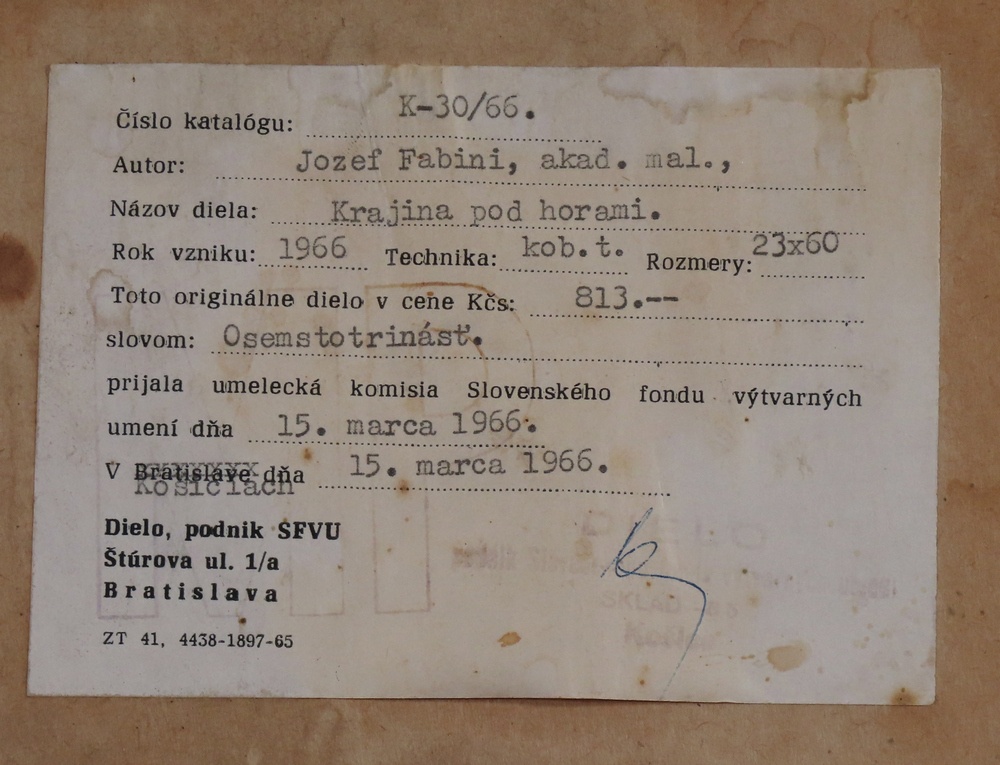 Číslo katalógu: K-30/66.
Autor: Jozef Fabini, akad. mal.,
Názov diela: Krajina pod horami.
Rok vzniku: 1966 Technika: kob.t. Rozmery: 23x60
Toto originálne dielo v cene Kčs: 813.--
slovom: Osemstotrinásť.
prijala umelecká komisia Slovenského fondu výtvarných
umení dňa 15. marca 1966.
V Bratislave dňa 15. marca 1966.
Košiciach
Dielo, podnik SFVU
Štúrova ul. 1/a
Bratislava
ZT 41, 4438-1897-65